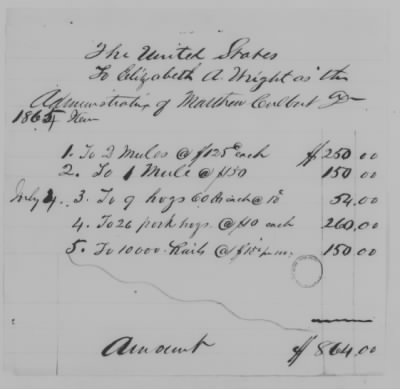 The United States
To Elizabeth A Wright as the
Administratrix of Matthew Dr
1864 Item
1. To 2 Mules @ $125 each $250.00
2. To 1 Mule @ $150 150.00
July 4. 3. To 9 hogs 60 lb each @ 10c 54.00
4. To 26 pork hogs @ $10 each 260.00
5. To 10000 Rails @ $15 per m. 150.00
Amount $864.00